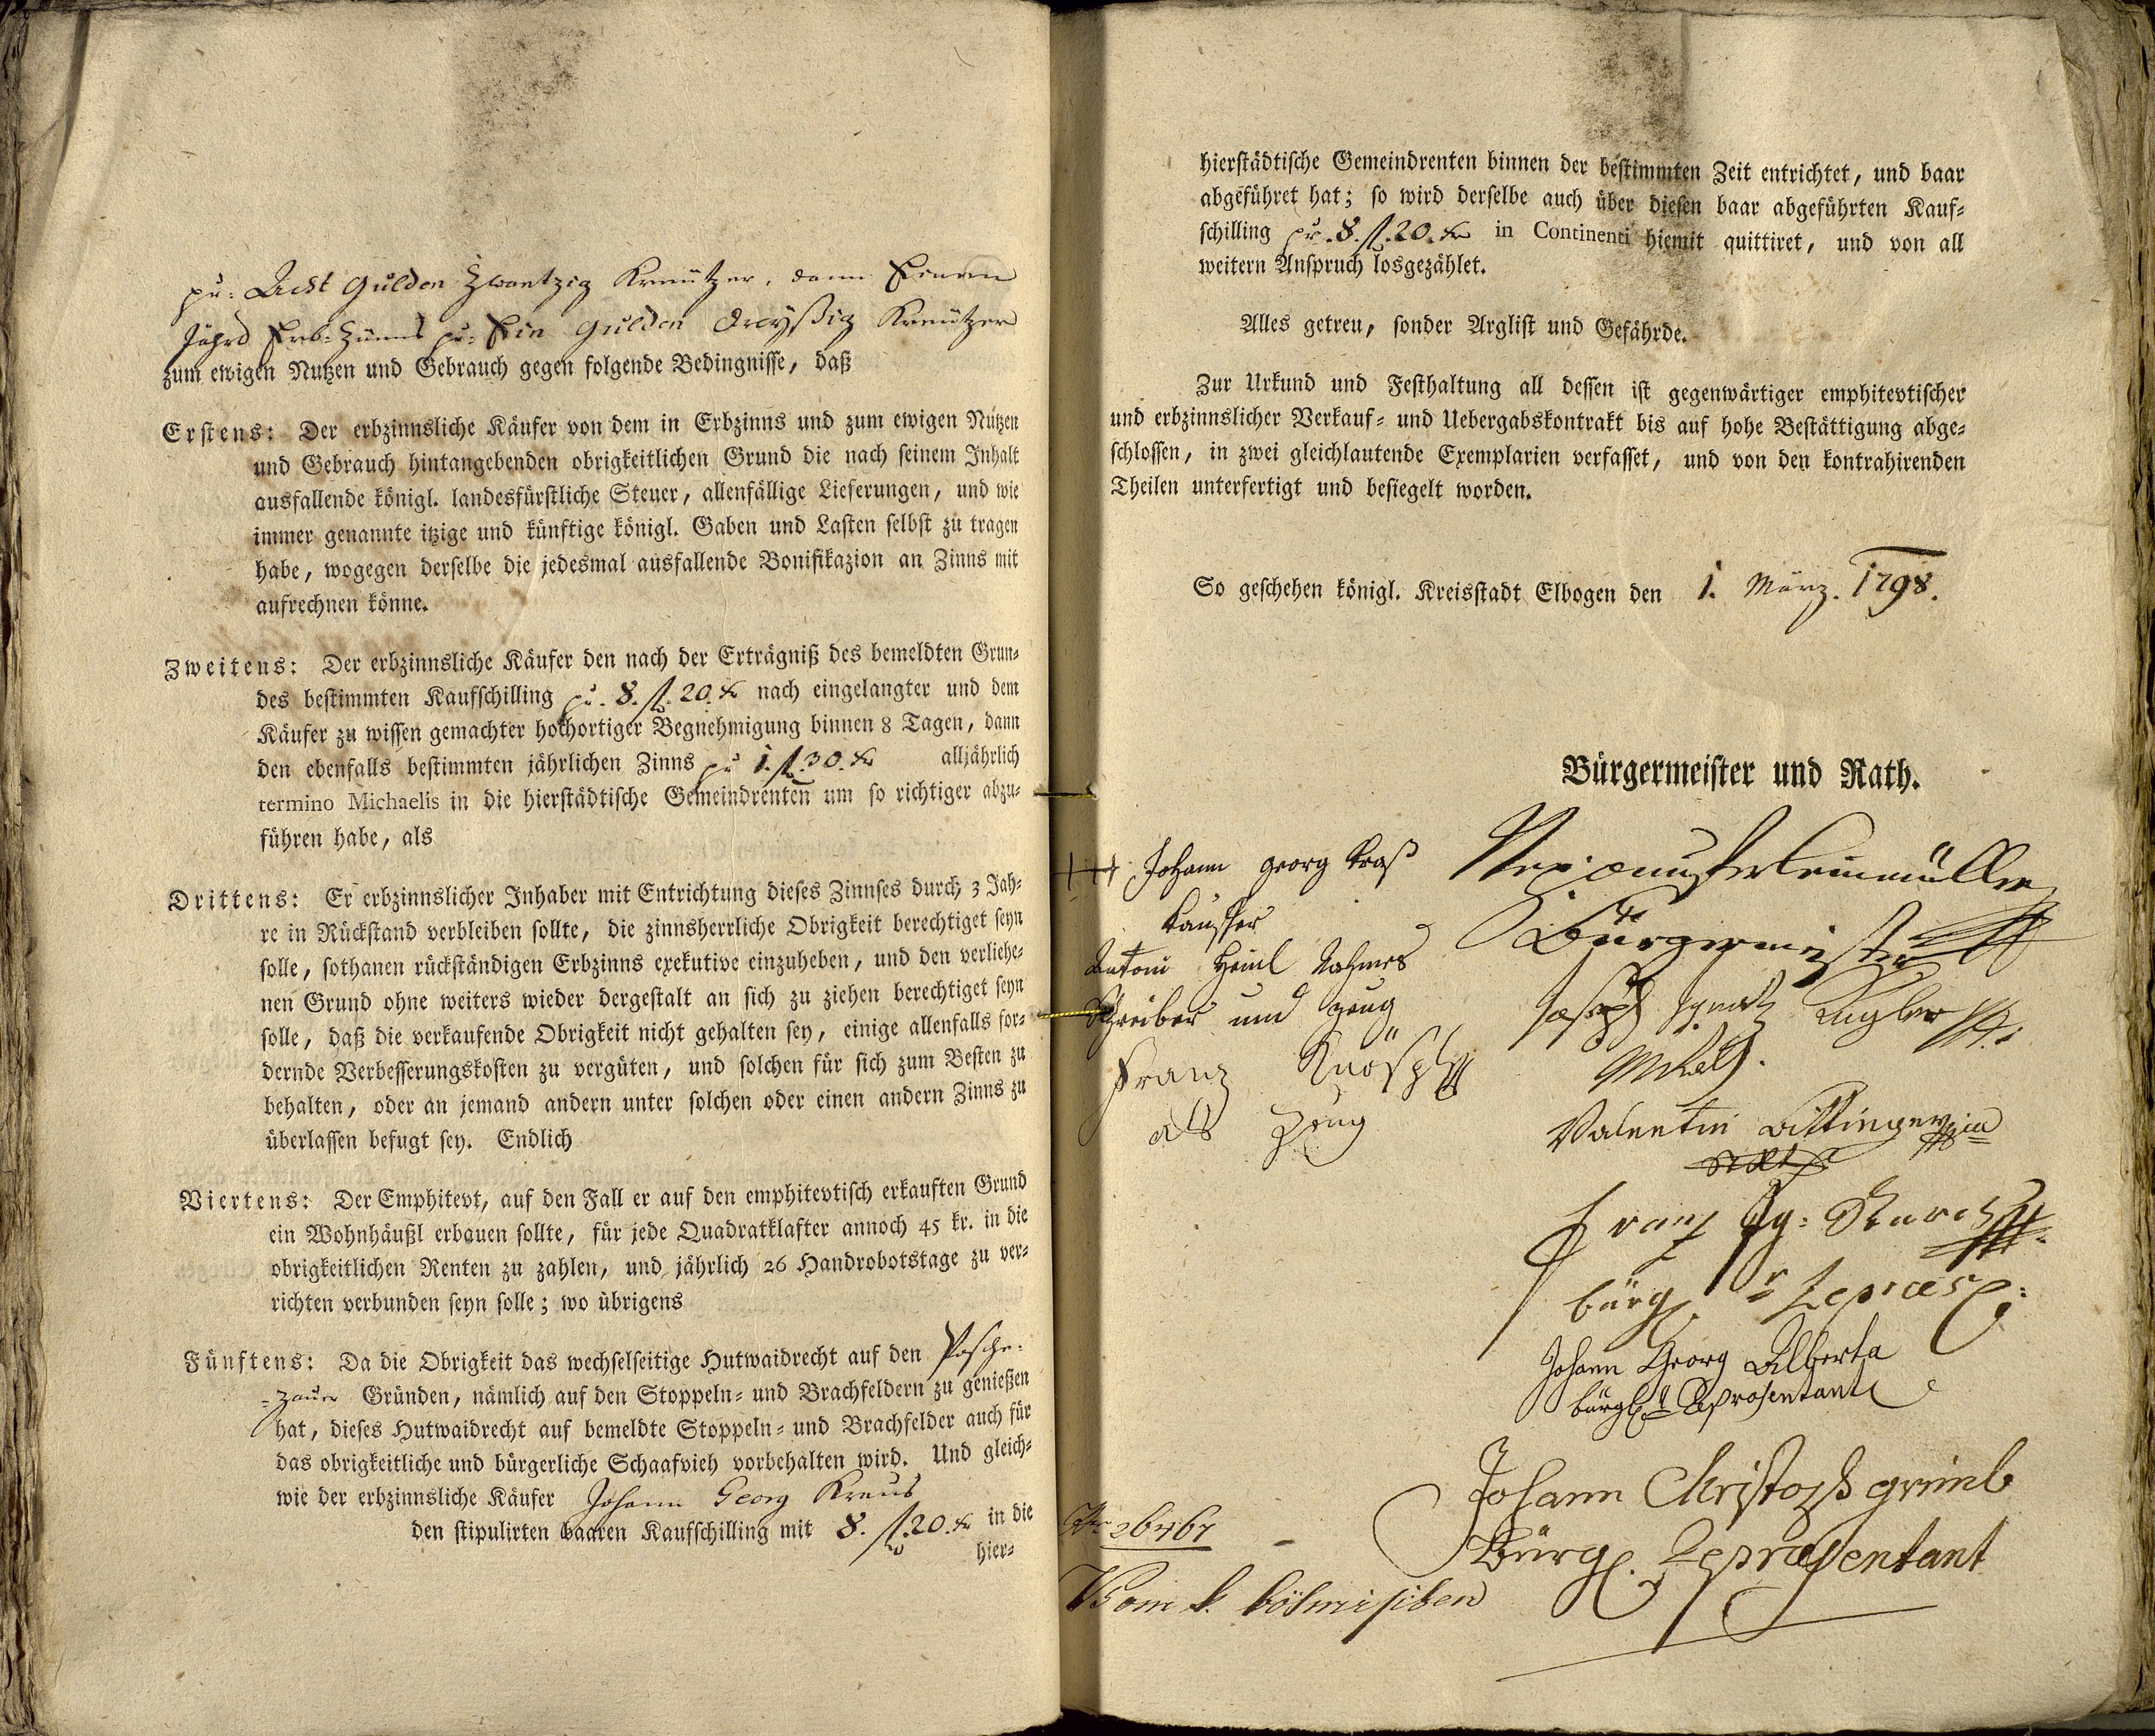 pr: Acht Gulden Zwantzig Kreützer, dann Einen
Jährl Erb-Zünns pr: Ein Gulden dreyßig Kreützer
zum ewigen Nutzen und Gebrauch gegen folgende Bedingnisse, daß
Erstens: Der erbzinnsliche Käufer von dem in Erbzinns und zum ewigen Nutzen
und Gebrauch hintangebenden obrigkeitlichen Grund die nach seinem Inhalt
ausfallende königl. landesfürstliche Steuer, allenfällige Lieferungen, und wie
immer genannte itzige und künftige königl. Gaben und Lasten selbst zu tragen
habe, wogegen derselbe die jedesmal ausfallende Bonifikazion an Zinns mit
aufrechnen könne.
Zweitens: Der erbzinnsliche Käufer den nach der Erträgniß des bemeldten Grun-
des bestimmten Kaufschilling pr. 8. fl. 20. kr nach eingelangter und dem
Käufer zu wissen gemachter hochortiger Begnehmigung binnen 8 Tagen, dann
den ebenfalls bestimmten jährlichen Zinns pr 1. fl. 30. kr alljährlich
termino Michaelis in die hierstädtische Gemeindrenten um so richtiger abzu-
führen habe, als
Drittens: Er erbzinnslicher Inhaber mit Entrichtung dieses Zinnses durch 3 Jah-
re in Rückstand verbleiben sollte, die zinnsherrliche Obrigkeit berechtiget seyn
solle, sothanen rückständigen Erbzinns exekutive einzuheben, und den verliehe-
nen Grund ohne weiters wieder dergestalt an sich zu ziehen berechtiget seyn
solle, daß die verkaufende Obrigkeit nicht gehalten sey, einige allenfalls for-
dernde Verbesserungskosten zu vergüten, und solchen für sich zum Besten zu
behalten, oder an jemand andern unter solchen oder einen andern Zinns zu
überlassen befugt sey. Endlich
Viertens: Der Emphitevt, auf den Fall er auf den emphitevtisch erkauften Grund
ein Wohnhäußl erbauen sollte, für jede Quadratklafter annoch 45 kr. in die
obrigkeitlichen Renten zu zahlen, und jährlich 26 Handrobotstage zu ver-
richten verbunden seyn solle; wo übrigens
Fünftens: Da die Obrigkeit das wechselseitige Hutwaidrecht auf den Posche-
-zauer Gründen, nämlich auf den Stoppeln- und Brachfeldern zu genießen
hat, dieses Hutwaidrecht auf bemeldte Stoppeln- und Brachfelder auch für
das obrigkeitliche und bürgerliche Schaafvieh vorbehalten wird. Und gleich-
wie der erbzinnsliche Käufer Johann Georg Kraus
den stipulirten baaren Kaufschilling mit 8. fl. 20. kr in die
hier-
hierstädtische Gemeindrenten binnen der bestimmten Zeit entrichtet, und baar
abgeführet hat; so wird derselbe auch über diesen baar abgeführten Kauf-
schilling pr. 8. fl. 20. kr in Continenti hiemit quittiret, und von all
weitern Anspruch losgezählet.
Alles getreu, sonder Arglist und Gefährde.
Zur Urkund und Festhaltung all dessen ist gegenwärtiger emphitevtischer
und erbzinnslicher Verkauf- und Uebergabskontrakt bis auf hohe Bestättigung abge-
schlossen, in zwei gleichlautende Exemplarien verfasset, und von den kontrahirenden
Theilen unterfertigt und besiegelt worden.
So geschehen königl. Kreisstadt Elbogen den 1. März. 1798.
Bürgermeister und Rath.
+++ Johann Georg Kraß
Kauffer
Antoni Heinl Nahmes
Schreiber und Zeug
Franz Knöspl
als Zeug
Bürgermeister
Joseph Ignatz Kugler
Valentin
Franz Ig:
bürgl. Repræs:
Johann Georg Alberta
bürgl. Repræsentant
Johann Christoph
Bürgl. Repræsentant
Nro 26467
Vom k. böhmischen